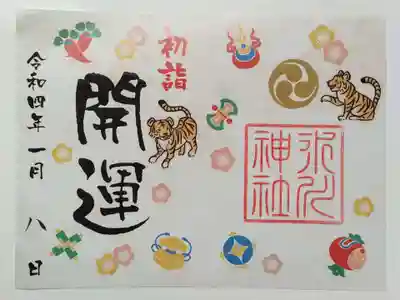 初詣
開運
氷川
神社
令和四年一月八日